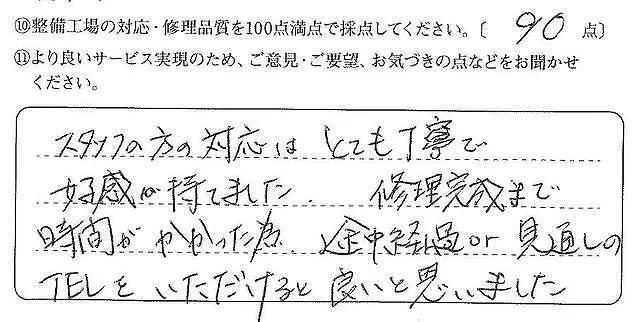 ⑩整備工場の対応・修理品質を100点満点で採点してください。〔 90 点〕
⑪より良いサービス実現のため、ご意見・ご要望、お気づきの点などをお聞かせ
ください。
スタッフの方の対応は とても丁寧で
好感が持てました. 修理完成まで
時間が かかった為 途中経過or 見通しの
TELを いただけると 良いと思いました